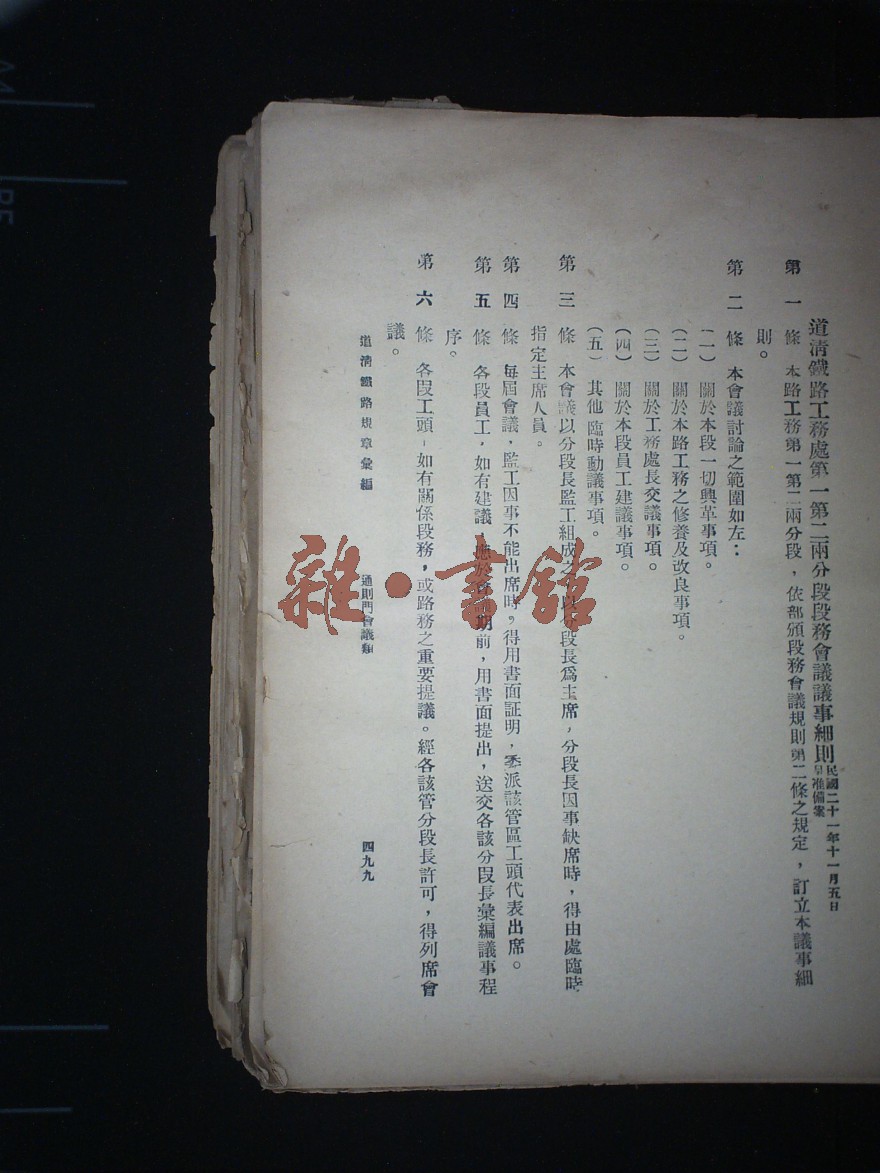 道淸鐵路工務處第一第二兩分段段務會議議事細則
民國二十一年十一月五日
呈准備案
第一條 本路工務第一第二兩分段，依部頒段務會議規則第二條之規定，訂立本議事細
則。
第二條 本會議討論之範圍如左：
(一) 關於本段一切興革事項。
(二) 關於本路工務之修養及改良事項。
(三) 關於工務處長交議事項。
(四) 關於本段員工建議事項。
(五) 其他臨時動議事項。
第三條 本會議以分段長監工組成之，以分段長爲主席，分段長因事缺席時，得由處臨時
指定主席人員。
第四條 每屆會議，監工因事不能出席時，得用書面証明，委派該管區工頭代表出席。
第五條 各段員工，如有建議，應於會期前，用書面提出，送交各該分段長彙編議事程
序。
第六條 各段工頭，如有關係段務，或路務之重要提議。經各該管分段長許可，得列席會
議。
道淸鐵路規章彙編
通則門會議類
四九九
雜·書館